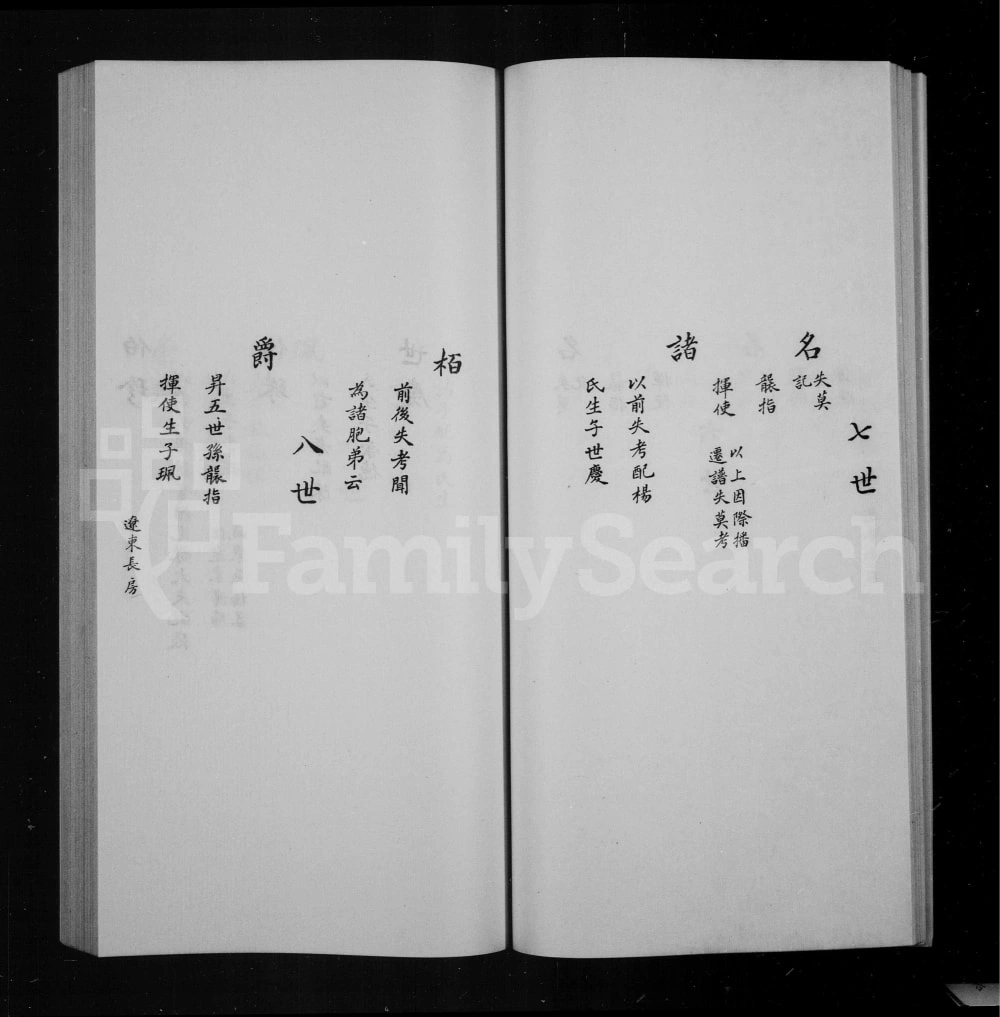 七世
名
失莫
記
襲指
揮使
以上因際播
遷譜失莫考
諸
以前失考配楊
氏生子世慶
栢
前後失考聞
為諸胞弟云
八世
爵
昇五世孫襲指
揮使生子珮
遼東長房
FamilySearch